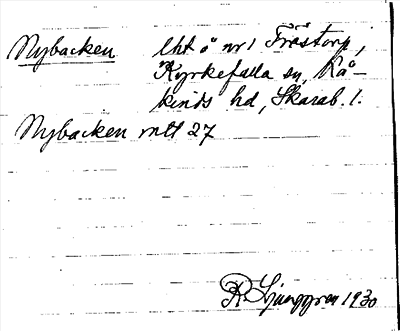 Nybacken lht å nr 1 Fröstorp,
Kyrkefalla sn, Kå-
kinds hd, Skarab. l.
Nybacken mtl 27
R. Ljunggren 1930